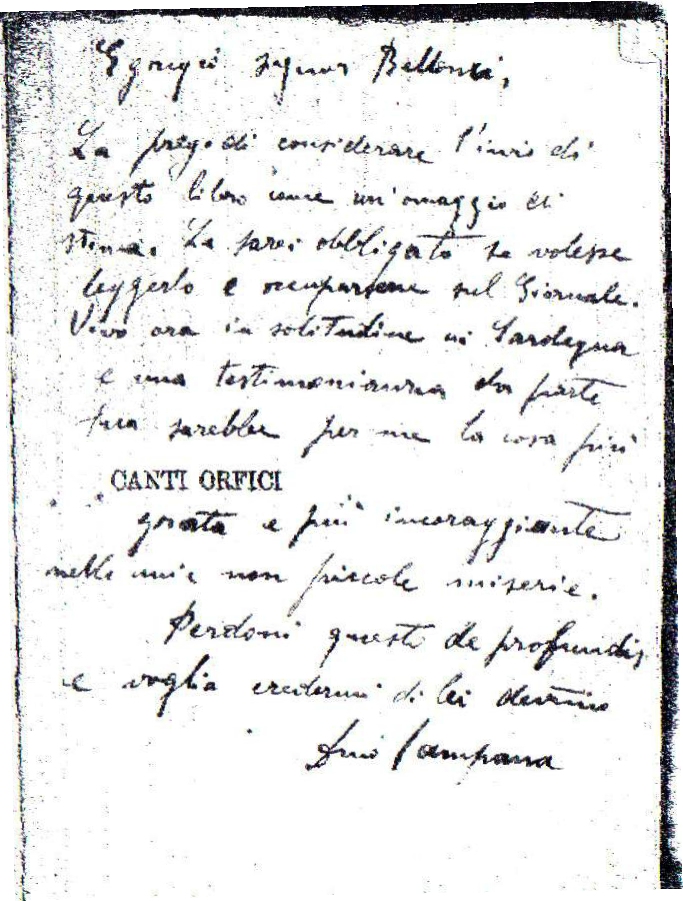 Egregio signor Bellonci,
La prego di considerare l'invio di
questo libro come un'omaggio di
stima. Le sarei obbligato se volesse
leggerlo e occuparsene sul Giornale.
Vivo ora in solitudine in Sardegna
e una testimonianza da parte
sua sarebbe per me la cosa più
CANTI ORFICI
grata e più incoraggiante
nelle mie non piccole miserie.
Perdoni questo de profundis,
e voglia credermi di lei devmo
Dino Campana